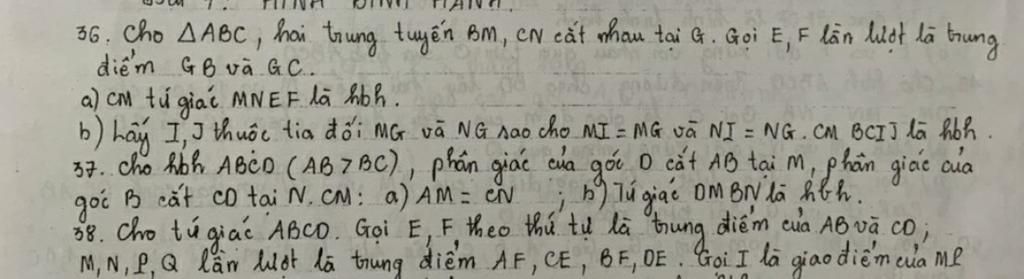 HÌNH BÌNH HÀNH.
36. Cho ΔABC, hai trung tuyến BM, CN cắt nhau tại G. Gọi E, F lần lượt là trung
điểm GB và GC.
a) CM tứ giác MNEF là hbh.
b) Lấy I, J thuộc tia đối MG và NG sao cho MI = MG và NI = NG. CM BCIJ là hbh.
37. Cho hbh ABCD (AB > BC), phân giác của góc D cắt AB tại M, phân giác của
góc B cắt CD tại N. CM: a) AM = CN ; b) Tứ giác DMBN là hbh.
38. Cho tứ giác ABCD. Gọi E, F theo thứ tự là trung điểm của AB và CD;
M, N, P, Q lần lượt là trung điểm AF, CE, BF, DE. Gọi I là giao điểm của MP